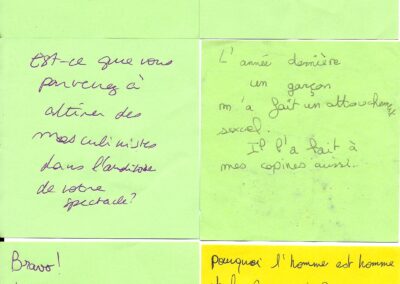 Est-ce que vous
parvenez à
attirer des
masculinistes
dans l'auditoire
de votre
spectacle?
L'année dernière
un garçon
m'a fait un attouchement
sexuel.
Il l'a fait à
mes copines aussi.
Bravo!
Pourquoi l'homme est homme